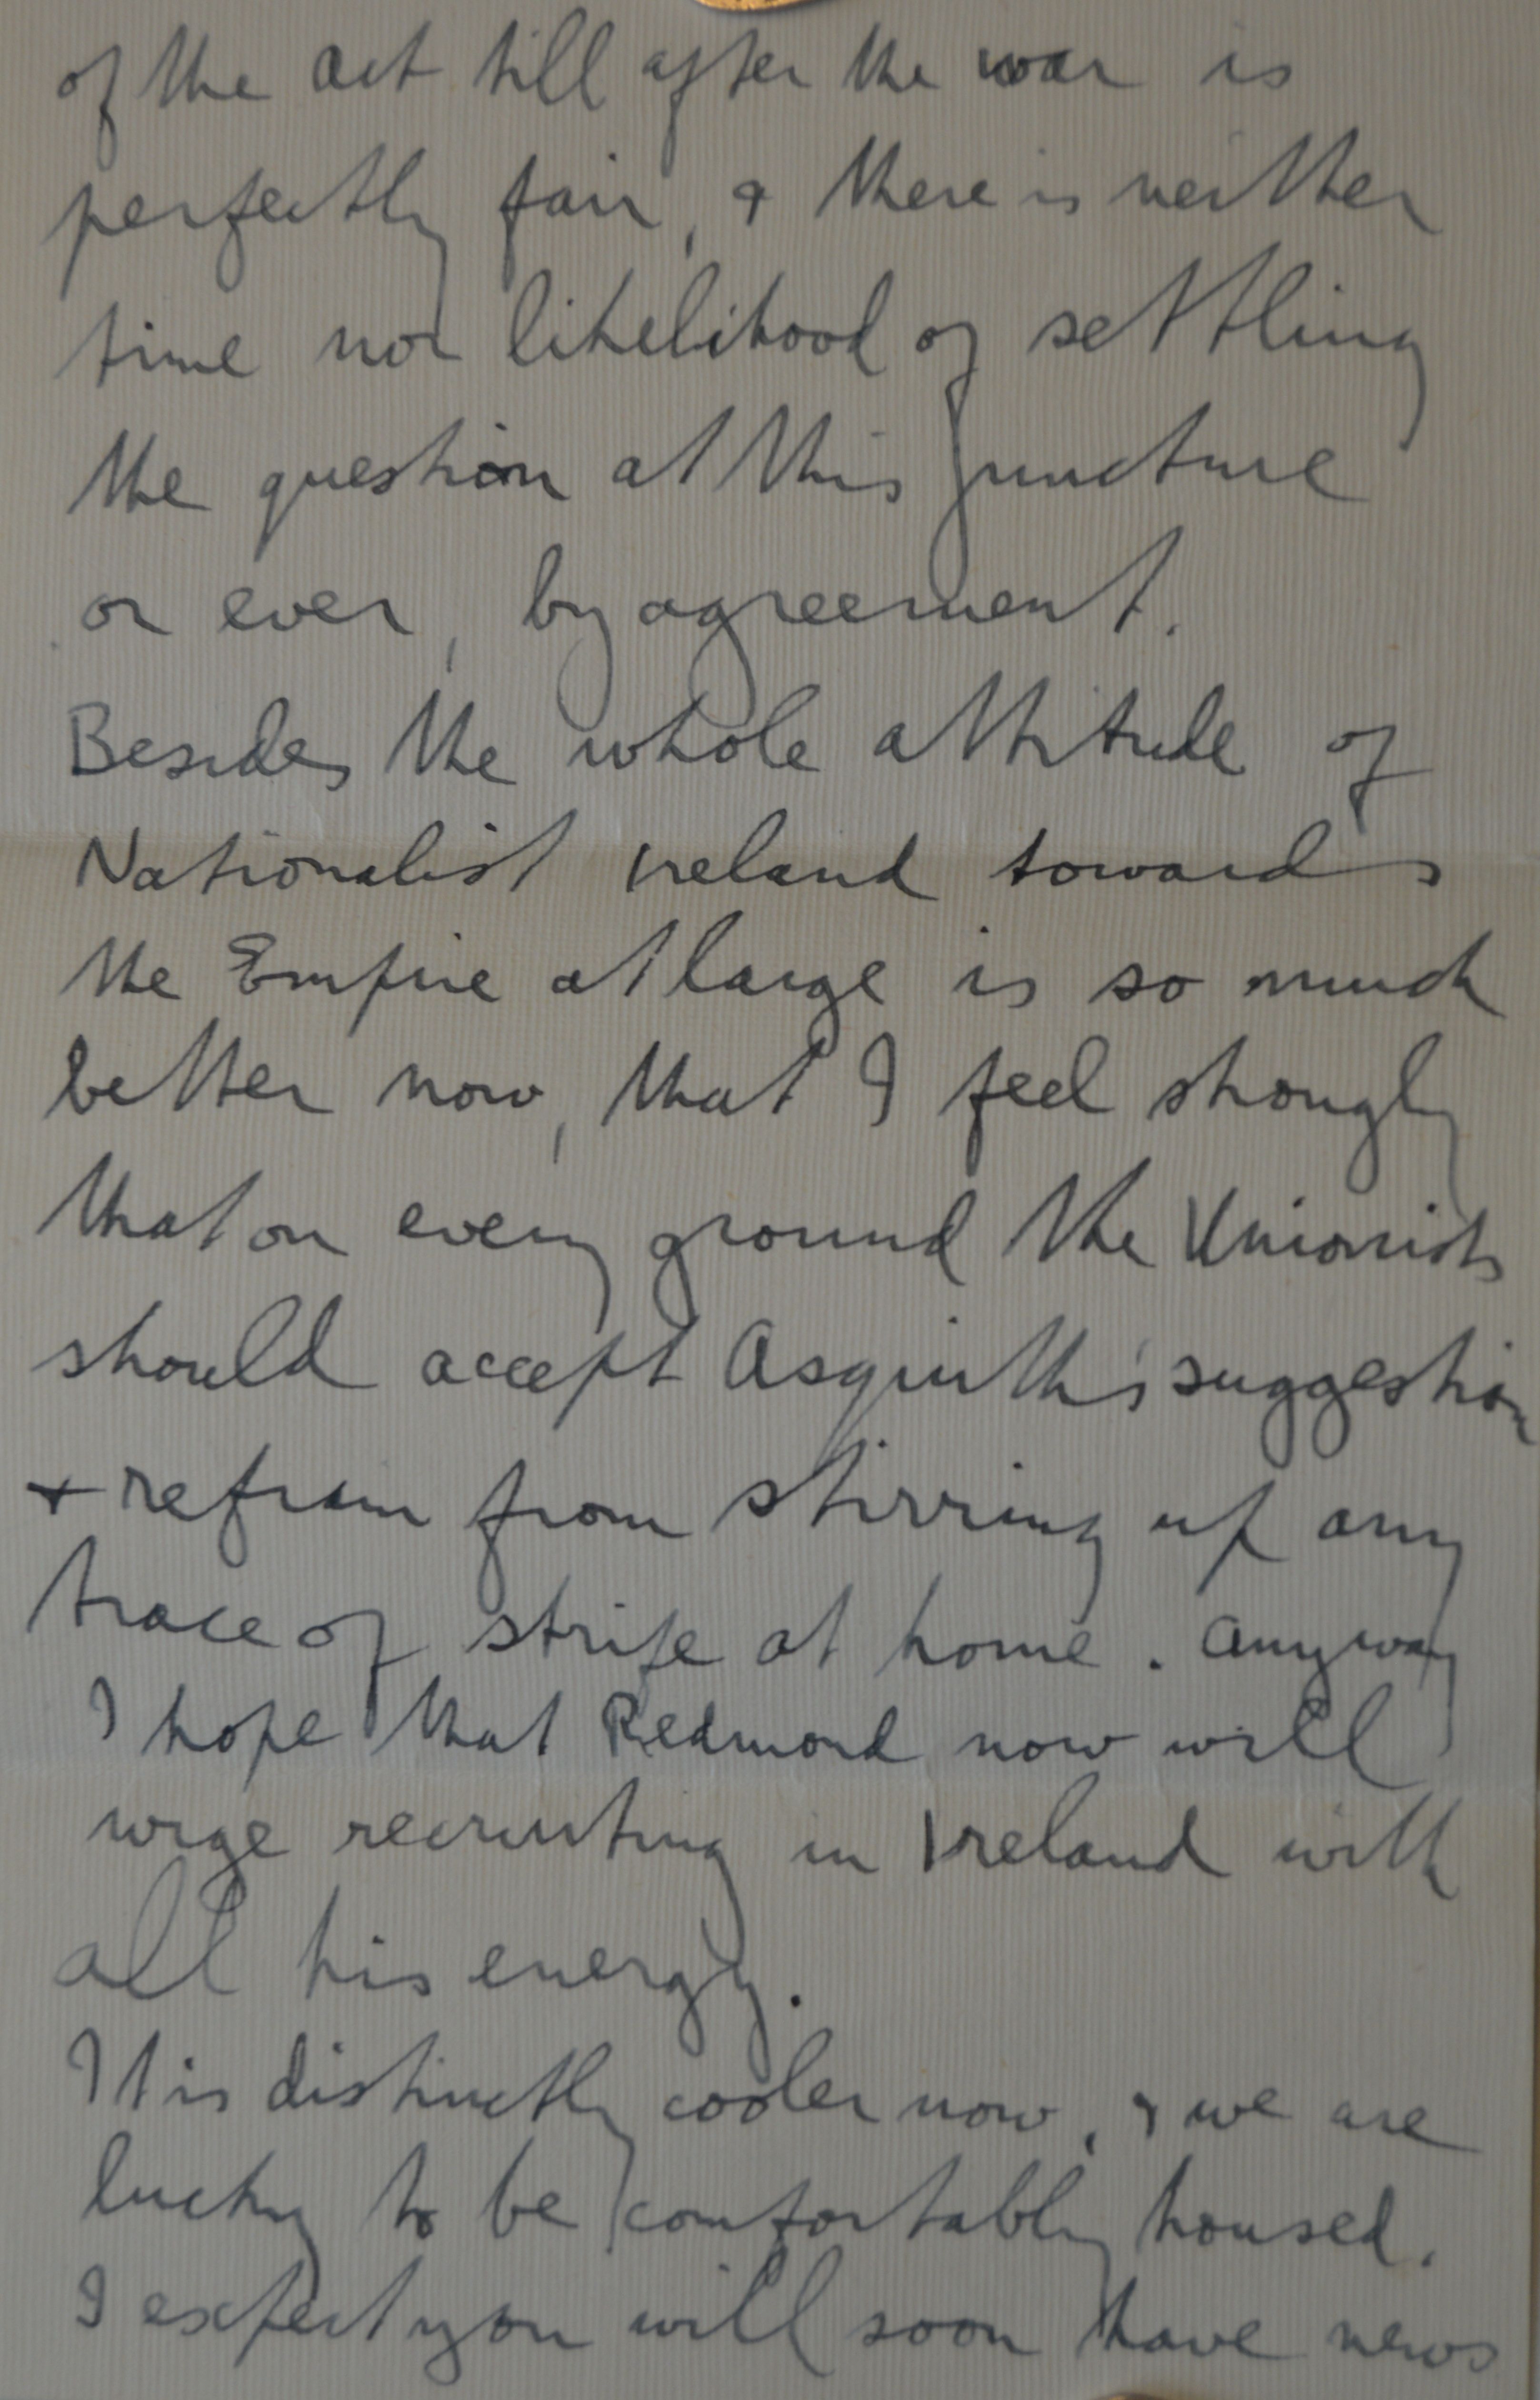 of the Act till after the war is
perfectly fair, & there is neither
time nor likelihood of settling
the question at this juncture
or ever, by agreement.
Besides the whole attitude of
Nationalist Ireland towards
the Empire at large is so much
better now, that I feel strongly
that on every ground the Unionists
should accept Asquith's suggestion
& refrain from stirring up any
trace of strife at home. Anyway
I hope that Redmond now will
urge recruiting in Ireland with
all his energy.
It is distinctly cooler now, & we are
lucky to be comfortably housed.
I expect you will soon have news